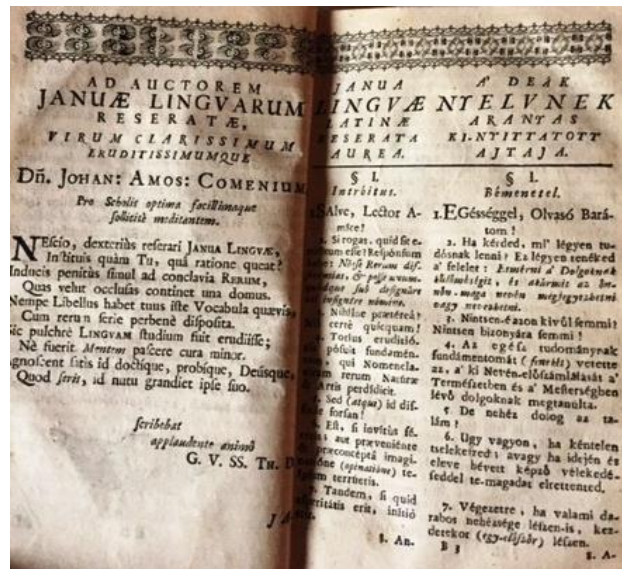 AD AUCTOREM
JANUÆ LINGVARUM
RESERATÆ,
VIRUM CLARISSIMUM
ERUDITISSIMUMQUE
Dñ. JOHAN: AMOS: COMENIUM
Pro Scholis optima facillimaque
sollicitè meditantem.
NEscio, dexteriùs reserari JANUA LINGVÆ,
Instituis quàm Tu, quâ ratione queat?
Inducis penitùs simul ad conclavia RERUM,
Quas velut occlusas continet una domus.
Nempe Libellus habet tuus iste Vocabula quævis,
Cum rerum serie perbenè disposita.
Sic pulchrè LINGVAM studium fuit erudiisse;
Nè fuerit Mentem pascere cura minor.
Agnoscent satis id doctique, probique, Deúsque,
Quod seris, id nutu grandiet ipse suo.
scribebat
applaudente animô
G. V. SS. Th. D.
JANUA
LINGVÆ
LATINÆ
RESERATA
AUREA.
§ I.
Introitus.
1. SAlve, Lector A-
mice!
2. Si rogas, quid sit e-
esse? Responsum
habe: Nosse Rerum dif-
& posse unum-
quodque suo designare
nomine.
3. Nihilne prætereà?
certè quicquam!
4. Totius eruditio-
posuit fundamen-
qui Nomencla-
rerum Naturæ
& Artis perdidicit.
5. Sed (atque) id dif-
forsan!
6. Est, si invitus fe-
aut præveniente
præconceptâ imagi-
(opinatione) te-
terrueris.
7. Tandem, si quid
erit, initiô
8. An-
A' DEÁK
NYELVNEK
ARANYAS
KI-NYITTATOTT
AJTAJA.
§ I.
Bémenetel.
1. EGésséggel, Olvasó Bará-
tom!
2. Ha kérded, mi' légyen tu-
dósnak lenni? Ez légyen tenéked
a' felelet: Esmérni a' Dolgoknak
különbségit, és akármit az ön-
nön-maga nevén meg-jegyezhetni
vagy nevezhetni.
3. Nintsen-é azon kivûl semmi?
Nintsen bizonyára semmi!
4. Az egész tudománynak
fundámentomát (fenekét) vetette
az, a' ki Nevén-elöszámlálását a'
Természetben és a' Mesterségben
lévő dolgoknak megtanúlta.
5. De nehéz dolog az ta-
lám!
6. Ugy vagyon, ha kéntelen
tselekeszed; avagy ha idején és
eleve bévett képzõ vélekedé-
seddel te-magadat elrettented.
7. Végezetre, ha valami da-
rabos nehézsége lészen-is, kez-
detekor (egy-elöször) lészen.
B 3
8. A-